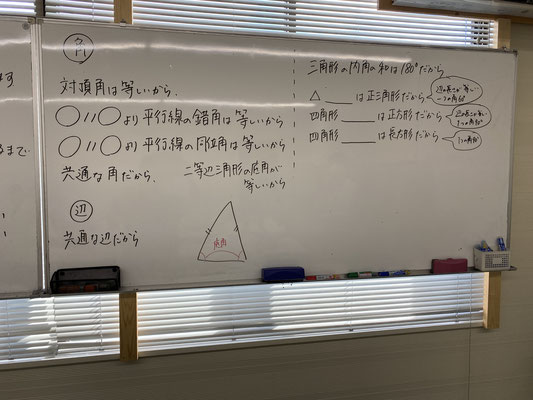 角
対頂角は等しいから、
○//○より平行線の錯角は等しいから
○//○より平行線の同位角は等しいから
共通な角だから、 二等辺三角形の底角が
等しいから
辺
共通な辺だから
底角
三角形の内角の和は180°だから
△____は正三角形だから
辺の長さが等しい
一つの角60°
四角形____は正方形だから
四角形____は長方形だから
1つの角90°